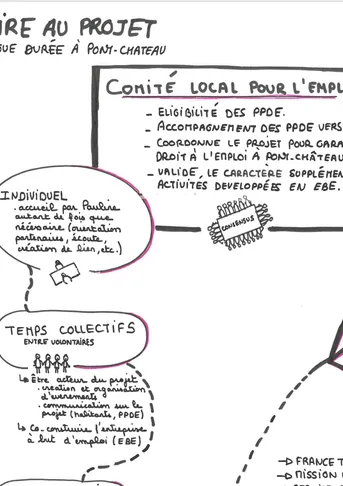 IRE AU PROJET
GUE DURÉE À PONT-CHATEAU
COMITÉ LOCAL POUR L'EMPL
- ELIGIBILITÉ DES PPDE.
- ACCOMPAGNEMENT DES PPDE VERS
- COORDONNE LE PROJET POUR GARA
DROIT À L'EMPLOI À PONT-CHÂTEAU
- VALIDE, LE CARACTÈRE SUPPLÉMEN
ACTIVITÉS DEVELOPPÉES EN EBE.
CONSENSUS
INDIVIDUEL
. accueil par Pauline
autant de fois que
nécessaire (orientation
partenaires, écoute,
création de lien, etc.)
TEMPS COLLECTIFS
ENTRE VOLONTAIRES
↳ Être acteur du projet
. création et organisation
d'évènements
. communication sur le
projet (habitants, PPDE)
↳ Co-construire l'entreprise
à but d'emploi (EBE)
→ FRANCE T
→ MISSION